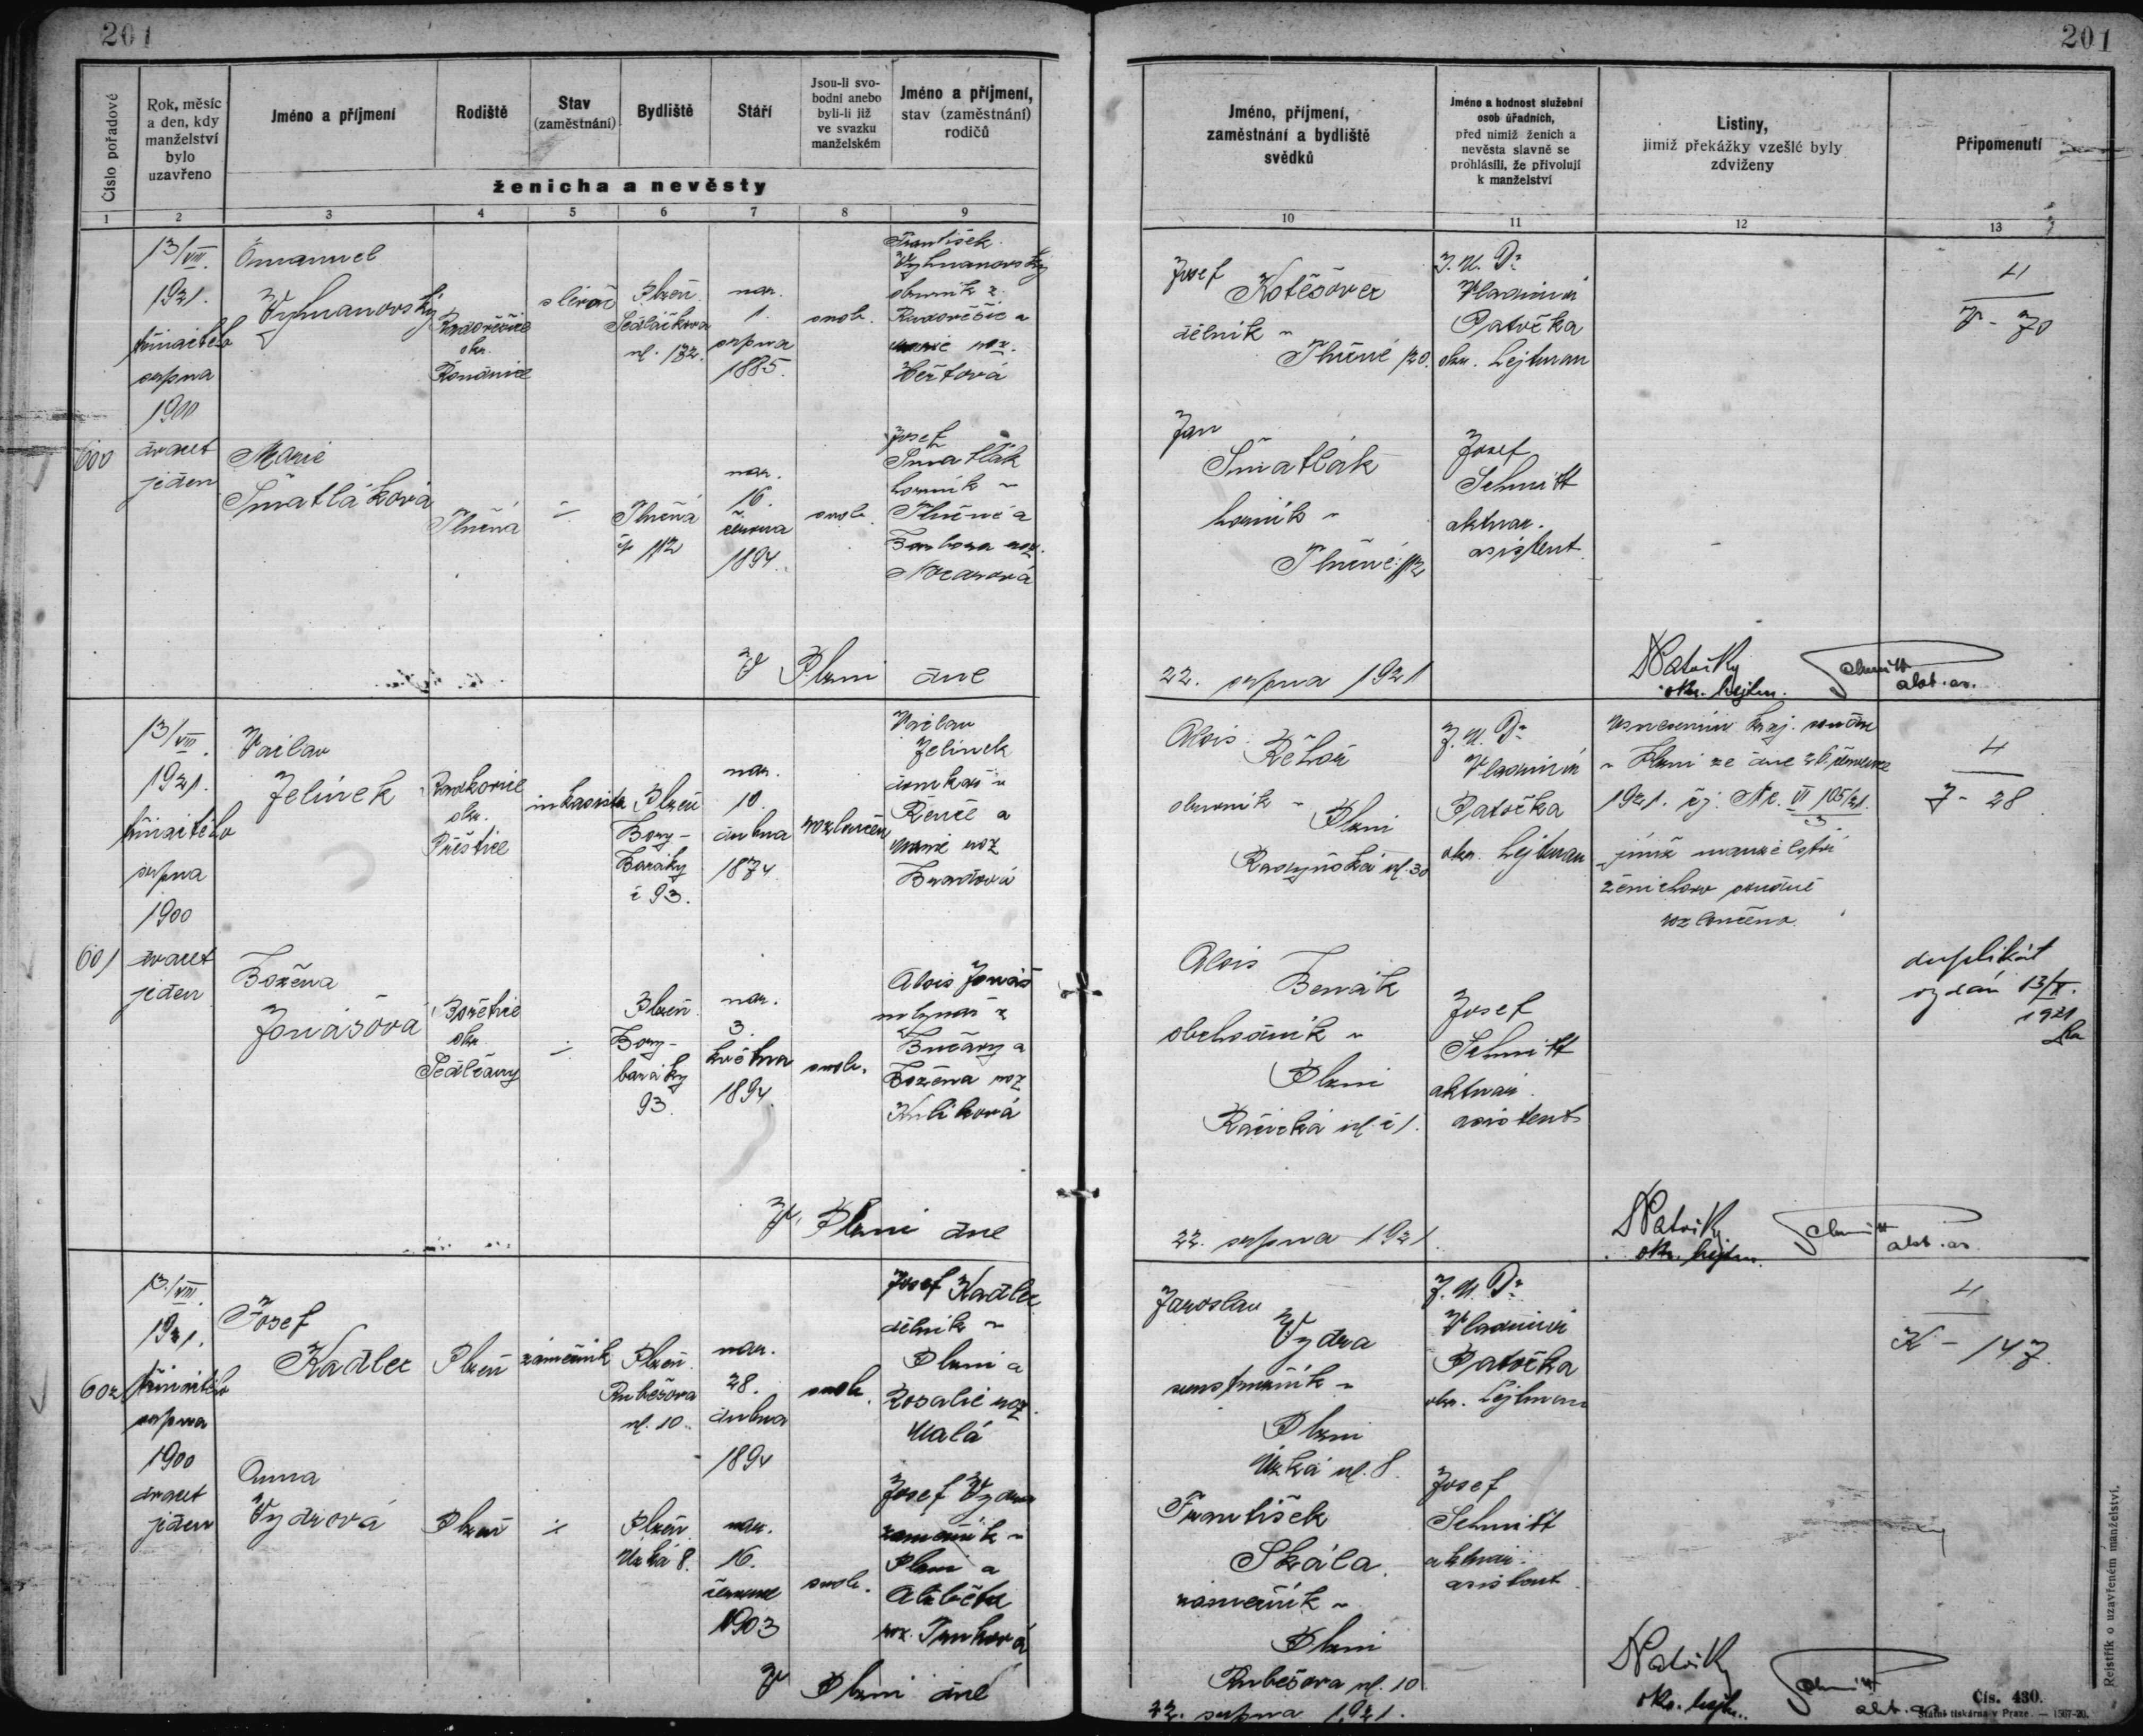 201
201
Číslo pořadové
Rok, měsíc
a den, kdy
manželství
bylo
uzavřeno
Jméno a příjmení
Rodiště
Stav
(zaměstnání)
Bydliště
Stáří
Jsou-li svo-
bodni anebo
byli-li již
ve svazku
manželském
Jméno a příjmení,
stav (zaměstnání)
rodičů
ženicha a nevěsty
1 2 3 4 5 6 7 8 9
Jméno, příjmení,
zaměstnání a bydliště
svědků
Jméno a hodnost služební
osob úřadních,
před nimiž ženich a
nevěsta slavně se
prohlásili, že přivolují
k manželství
Listiny,
jimiž překážky vzešlé byly
zdviženy
Připomenutí
10 11 12 13
600
13/VIII.
1921.
třináctého
srpna
1900
dvacet
jeden
Emanuel
okr.
slévač
Plzeň
Sedláčkova
ul. 132.
nar.
1.
srpna
1885.
svob.
František
Marie
Šmatláková
Tlučná
÷
Tlučná
čp 112
nar.
16.
června
1894.
svob.
Josef
Šmatlák
horník v
Tlučné a
Barbora roz.
V Plzni dne
Josef
Kotěšovec
dělník v
Tlučné 120.
J. U. Dr
Vladimír
Patočka
okr. hejtman
4
V - 70
Jan
Šmatlák
horník v
Tlučné 112
Josef
Schmitt
aktuar.
asistent
22. srpna 1921
okr. hejtm.
601
13/VIII.
1921.
třináctého
srpna
1900
dvacet
jeden
Václav
Jelínek
okr.
Přeštice
inkasista
Plzeň
Bory-
Baráky
č 93.
nar.
10.
dubna
1874
rozloučen
Václav
Jelínek
domkář v
Řenče a
Marie roz
Božena
Jonášová
okr.
Sedlčany
÷
Plzeň
Bory-
baráky
93.
nar.
3.
května
1894.
svob.
Alois Jonáš
mlynář z
Božena roz
Kulíková
V Plzni dne
Alois Řehoř
obuvník v
Plzni
Radyňská ul. 30
J. U. Dr
Vladimír
Patočka
okr. hejtman
usnesením kraj. soudu
v Plzni ze dne
1921. čj. Nc. VI 105/21.
3
jímž manželství
ženichovo soudně
rozloučeno.
4
J - 28
Alois
Benák
obchodník v
Plzni
ul. č 1.
Josef
Schmitt
aktuar.
asistent
duplikát
vydán 13/X.
1921
22. srpna 1921.
okr. hejtm.
602
13./VIII.
1921.
třináctého
srpna
1900
dvacet
jeden
Josef
Kadlec
Plzeň
zámečník
Plzeň
Rubešova
ul. 10.
nar.
28.
dubna
1894
svob.
Josef Kadlec
dělník v
Plzni a
Rosalie roz.
Malá
Anna
Vydrová
Plzeň
÷
Plzeň
Úzká 8.
nar.
16.
1903
svob.
Josef Vydra
zámečník v
Plzni a
Alžběta
roz.
V Plzni dne
Jaroslav
Vydra
v
Plzni
Úzká ul. 8.
J. U. Dr
Vladimír
Patočka
okr. hejtman
4
K - 147.
František
Skála
zámečník v
Plzni
Rubešova ul. 10
Josef
Schmitt
aktuar.
asistent
22. srpna 1921.
okr. hejtm.
Čís. 430.
Státní tiskárna v Praze. — 1567-20.
Rejstřík o uzavřeném manželství.